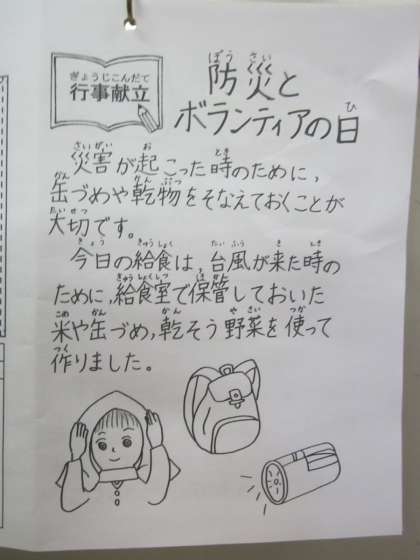 行事献立
防災と
ボランティアの日
災害が起こった時のために,
缶づめや乾物をそなえておくことが
大切です。
今日の給食は 台風が来た時の
ために,給食室で保管しておいた
米や缶づめ,乾そう野菜を使って
作りました。